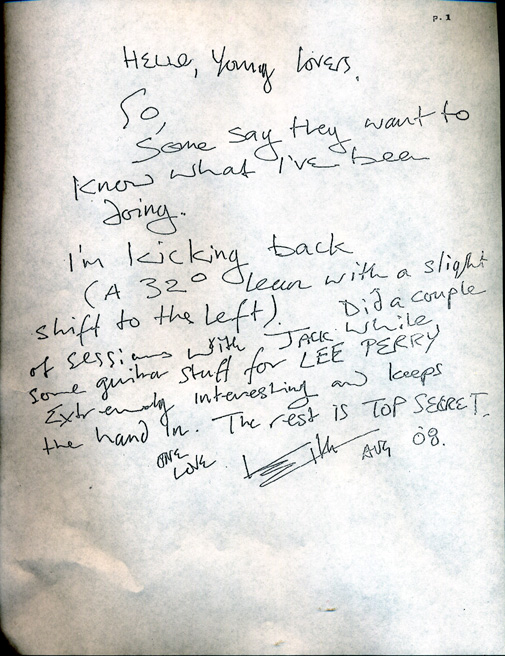 p. 1
Hello, Young Lovers.
So,
Some say they want to
know what I've been
doing.
I'm kicking back
(A 32° lean with a slight
shift to the left). Did a couple
of sessions with JACK White
some guitar stuff for LEE PERRY
Extremely interesting and keeps
the hand in. The rest is TOP SECRET.
ONE
LOVE
AUG 08.